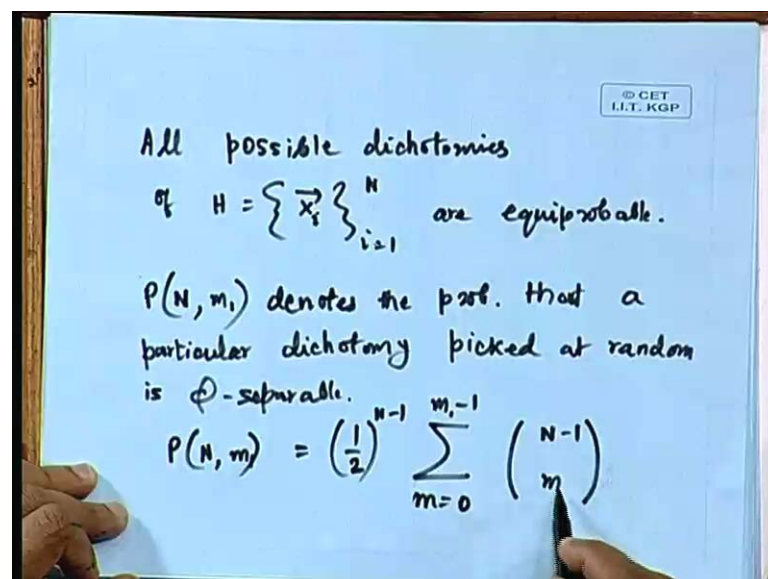 © CET
I.I.T. KGP
All possible dichotomies
of H = { x⃗ᵢ }ᵢ₌₁ᴺ are equiprobable.
P(N, m₁) denotes the prob. that a
particular dichotomy picked at random
is φ-separable.
P(N, m₁) = (1/2)ᴺ⁻¹ ∑ₘ₌₀ᵐ¹⁻¹ (N-1 m)